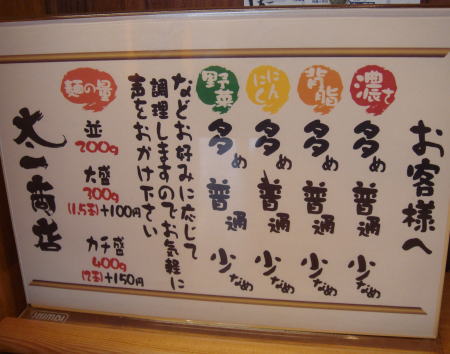 お客様へ
濃さ
多め
普通
少なめ
背脂
多め
普通
少なめ
にんにく
多め
普通
少なめ
野菜
多め
普通
少なめ
などお好みに応じて
調理しますのでお気軽に
声をおかけ下さい
麺の量
並
200g
大盛
300g
(1.5玉)+100円
カチ盛
400g
(2玉)+150円
太一商店